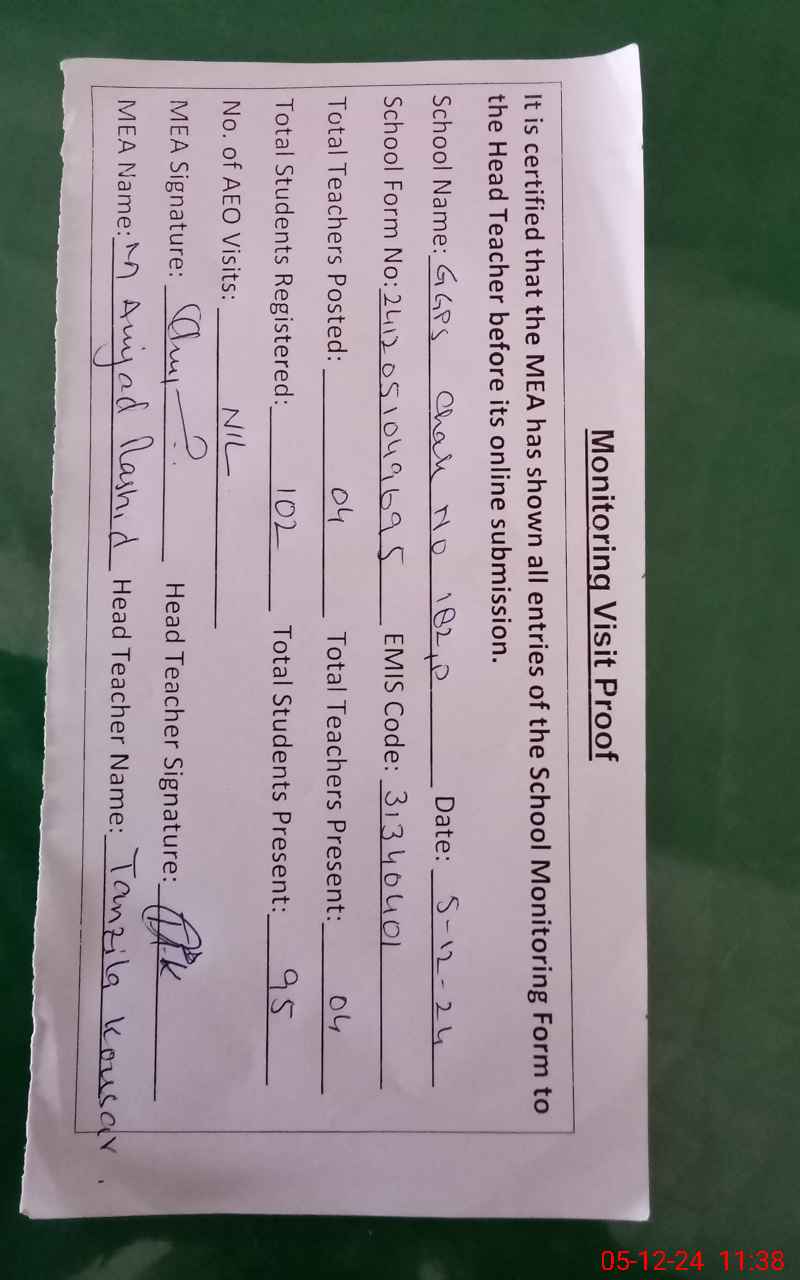 Monitoring Visit Proof
It is certified that the MEA has shown all entries of the School Monitoring Form to
the Head Teacher before its online submission.
School Name: GGPS Chak No 182,P Date: 5-12-24
School Form No: 2412051049695 EMIS Code: 31340401
Total Teachers Posted: 04 Total Teachers Present: 04
Total Students Registered: 102 Total Students Present: 95
No. of AEO Visits: NIL
MEA Signature: Head Teacher Signature:
MEA Name: M Amjad Rashid Head Teacher Name: Tanzila Kousar
05-12-24 11:38